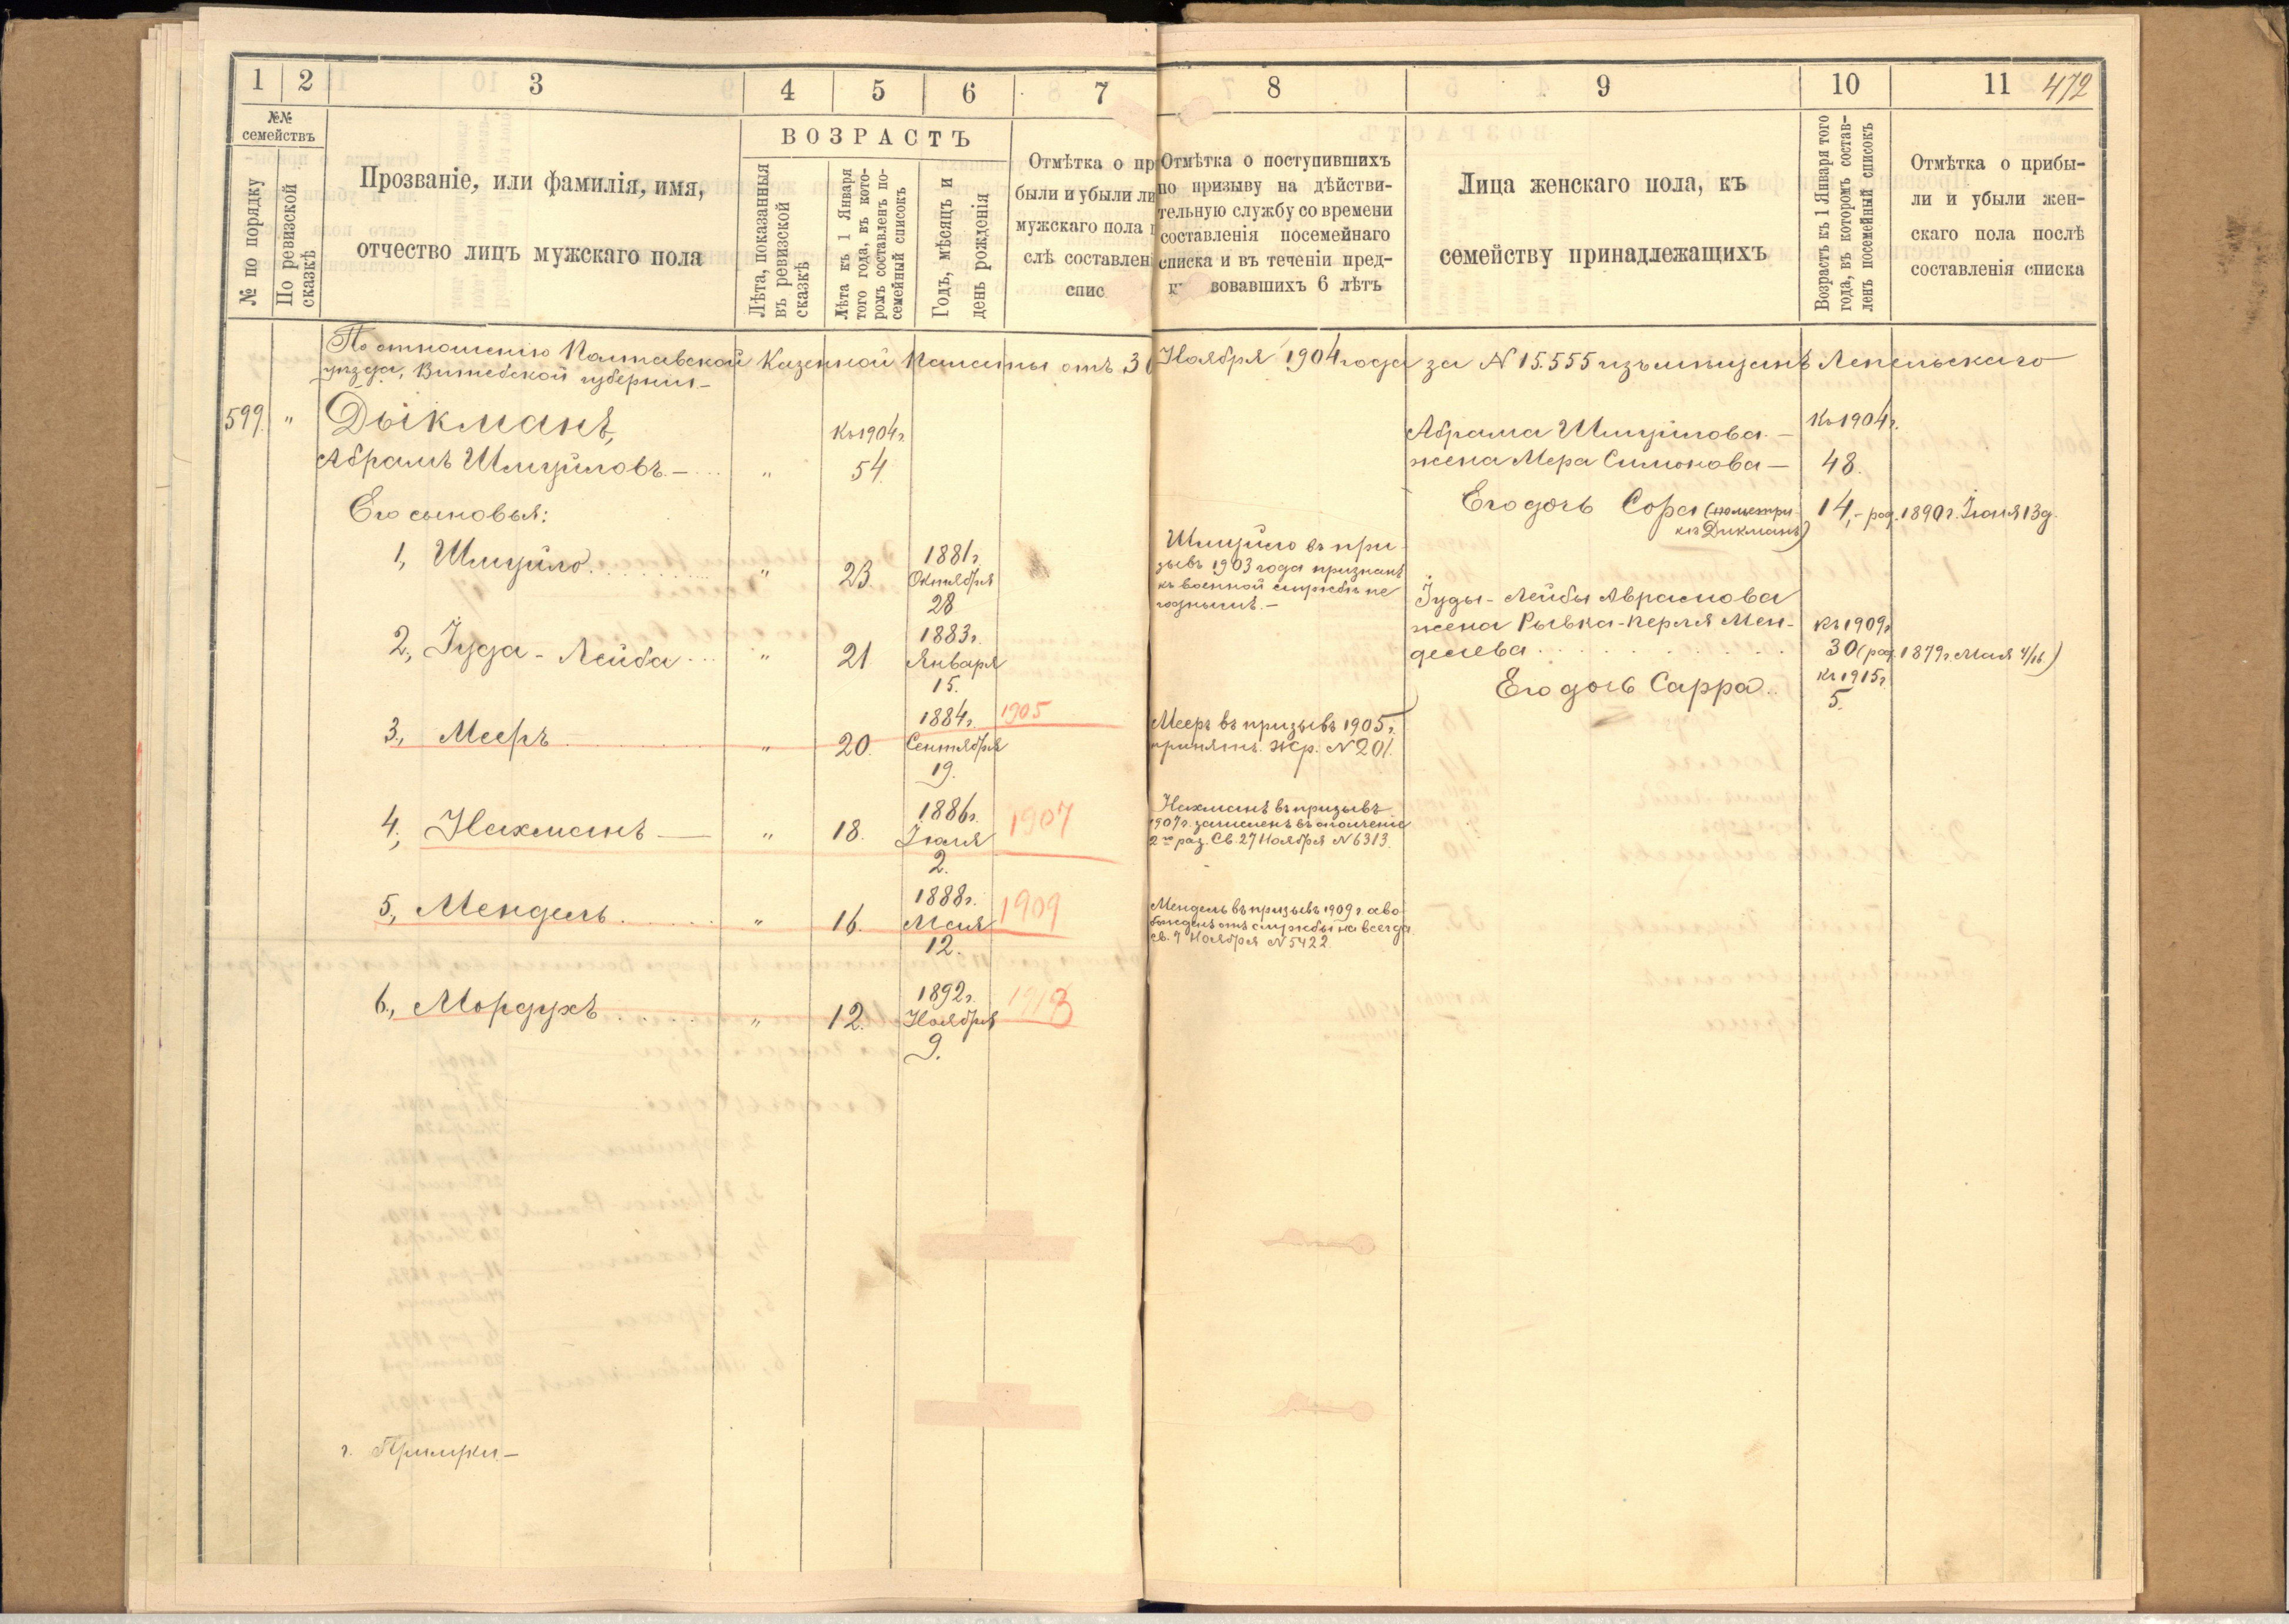 1 2 3 4 5 6 7 8 9 10 11 472
№№
семействъ
№ по порядку
По ревизской
сказкѣ
Прозваніе, или фамилія, имя,
отчество лицъ мужскаго пола
ВОЗРАСТЪ
Лѣта, показанныя
въ ревизской
сказкѣ
Лѣта къ 1 Января
того года, въ кото-
ромъ составленъ по-
семейный списокъ
Годъ, мѣсяцъ и
день рожденія
Отмѣтка о пр
были и убыли ли
мужскаго пола п
слѣ составлен
спис
Отмѣтка о поступившихъ
по призыву на дѣйстви-
тельную службу со времени
составленія посемейнаго
списка и въ теченіи пред-
вовавшихъ 6 лѣтъ
Лица женскаго пола, къ
семейству принадлежащихъ
Возрастъ къ 1 Января того
года, въ которомъ состав-
ленъ посемейный списокъ
Отмѣтка о прибы-
ли и убыли жен-
скаго пола послѣ
составленія списка
По отношенію Полтавской Казенной Палаты отъ 30 Ноября 1904 года за N 15.555 изъ мѣщанъ Лепельскаго
уѣзда, Витебской губерніи—
599. " Дыкманъ,
къ 1904 г.
Абрамъ Шмуйловъ.— " 54.
Его сыновья:
1, Шмуйло. " 23. 1881 г.
Октября
28
2, Іуда-Лейба " 21 1883 г.
Января
15.
3., Мееръ " 20. 1884 г. 1905
Сентября
19.
4, Нахманъ — " 18. 1886 г. 1907
Іюля
2.
5, Мендель " 16. 1888 г. 1909
Мая
12.
6., Мордухъ " 12. 1892 г. 1913
Ноября
9.
г. Прилуки—
Шмуйло въ при-
зывъ 1903 года признанъ
къ военной службѣ не
годнымъ.—
Мееръ въ призывъ 1905 г.
принятъ. Жр. N 201.
Нахманъ въ призывъ
1907 г. зачисленъ въ ополченіе
2го раз. Св. 27 Ноября N 6313.
Мендель въ призывъ 1909 г. осво-
божденъ отъ службы на всегда
св. 9 Ноября N 5422.
Абрама Шмуйлова.— Къ 1904 г.
жена Мера Симонова— 48.
Его дочь Сора (по метри- 14,—род. 1890 г. Іюня 13 д.
кѣ Дикманъ)
Іуды-Лейбы Абрамова
жена Рывка-Перля Мен- къ 1909 г.
делева 30 (род. 1879 г. Мая 4/16)
къ 1915 г.
Его дочь Сарра. 5.